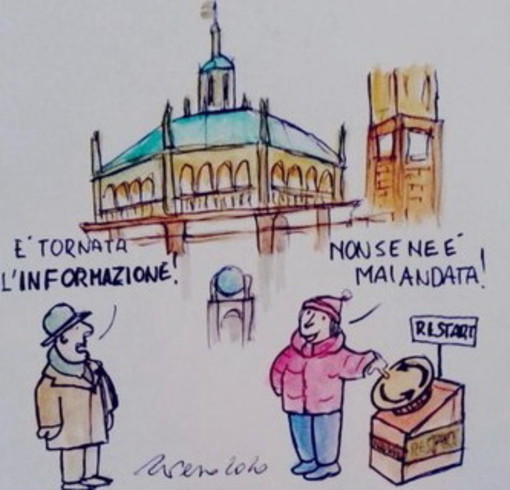 E' TORNATA
L'INFORMAZIONE!
NON SE NE E'
MAI ANDATA!
RESTART
2020